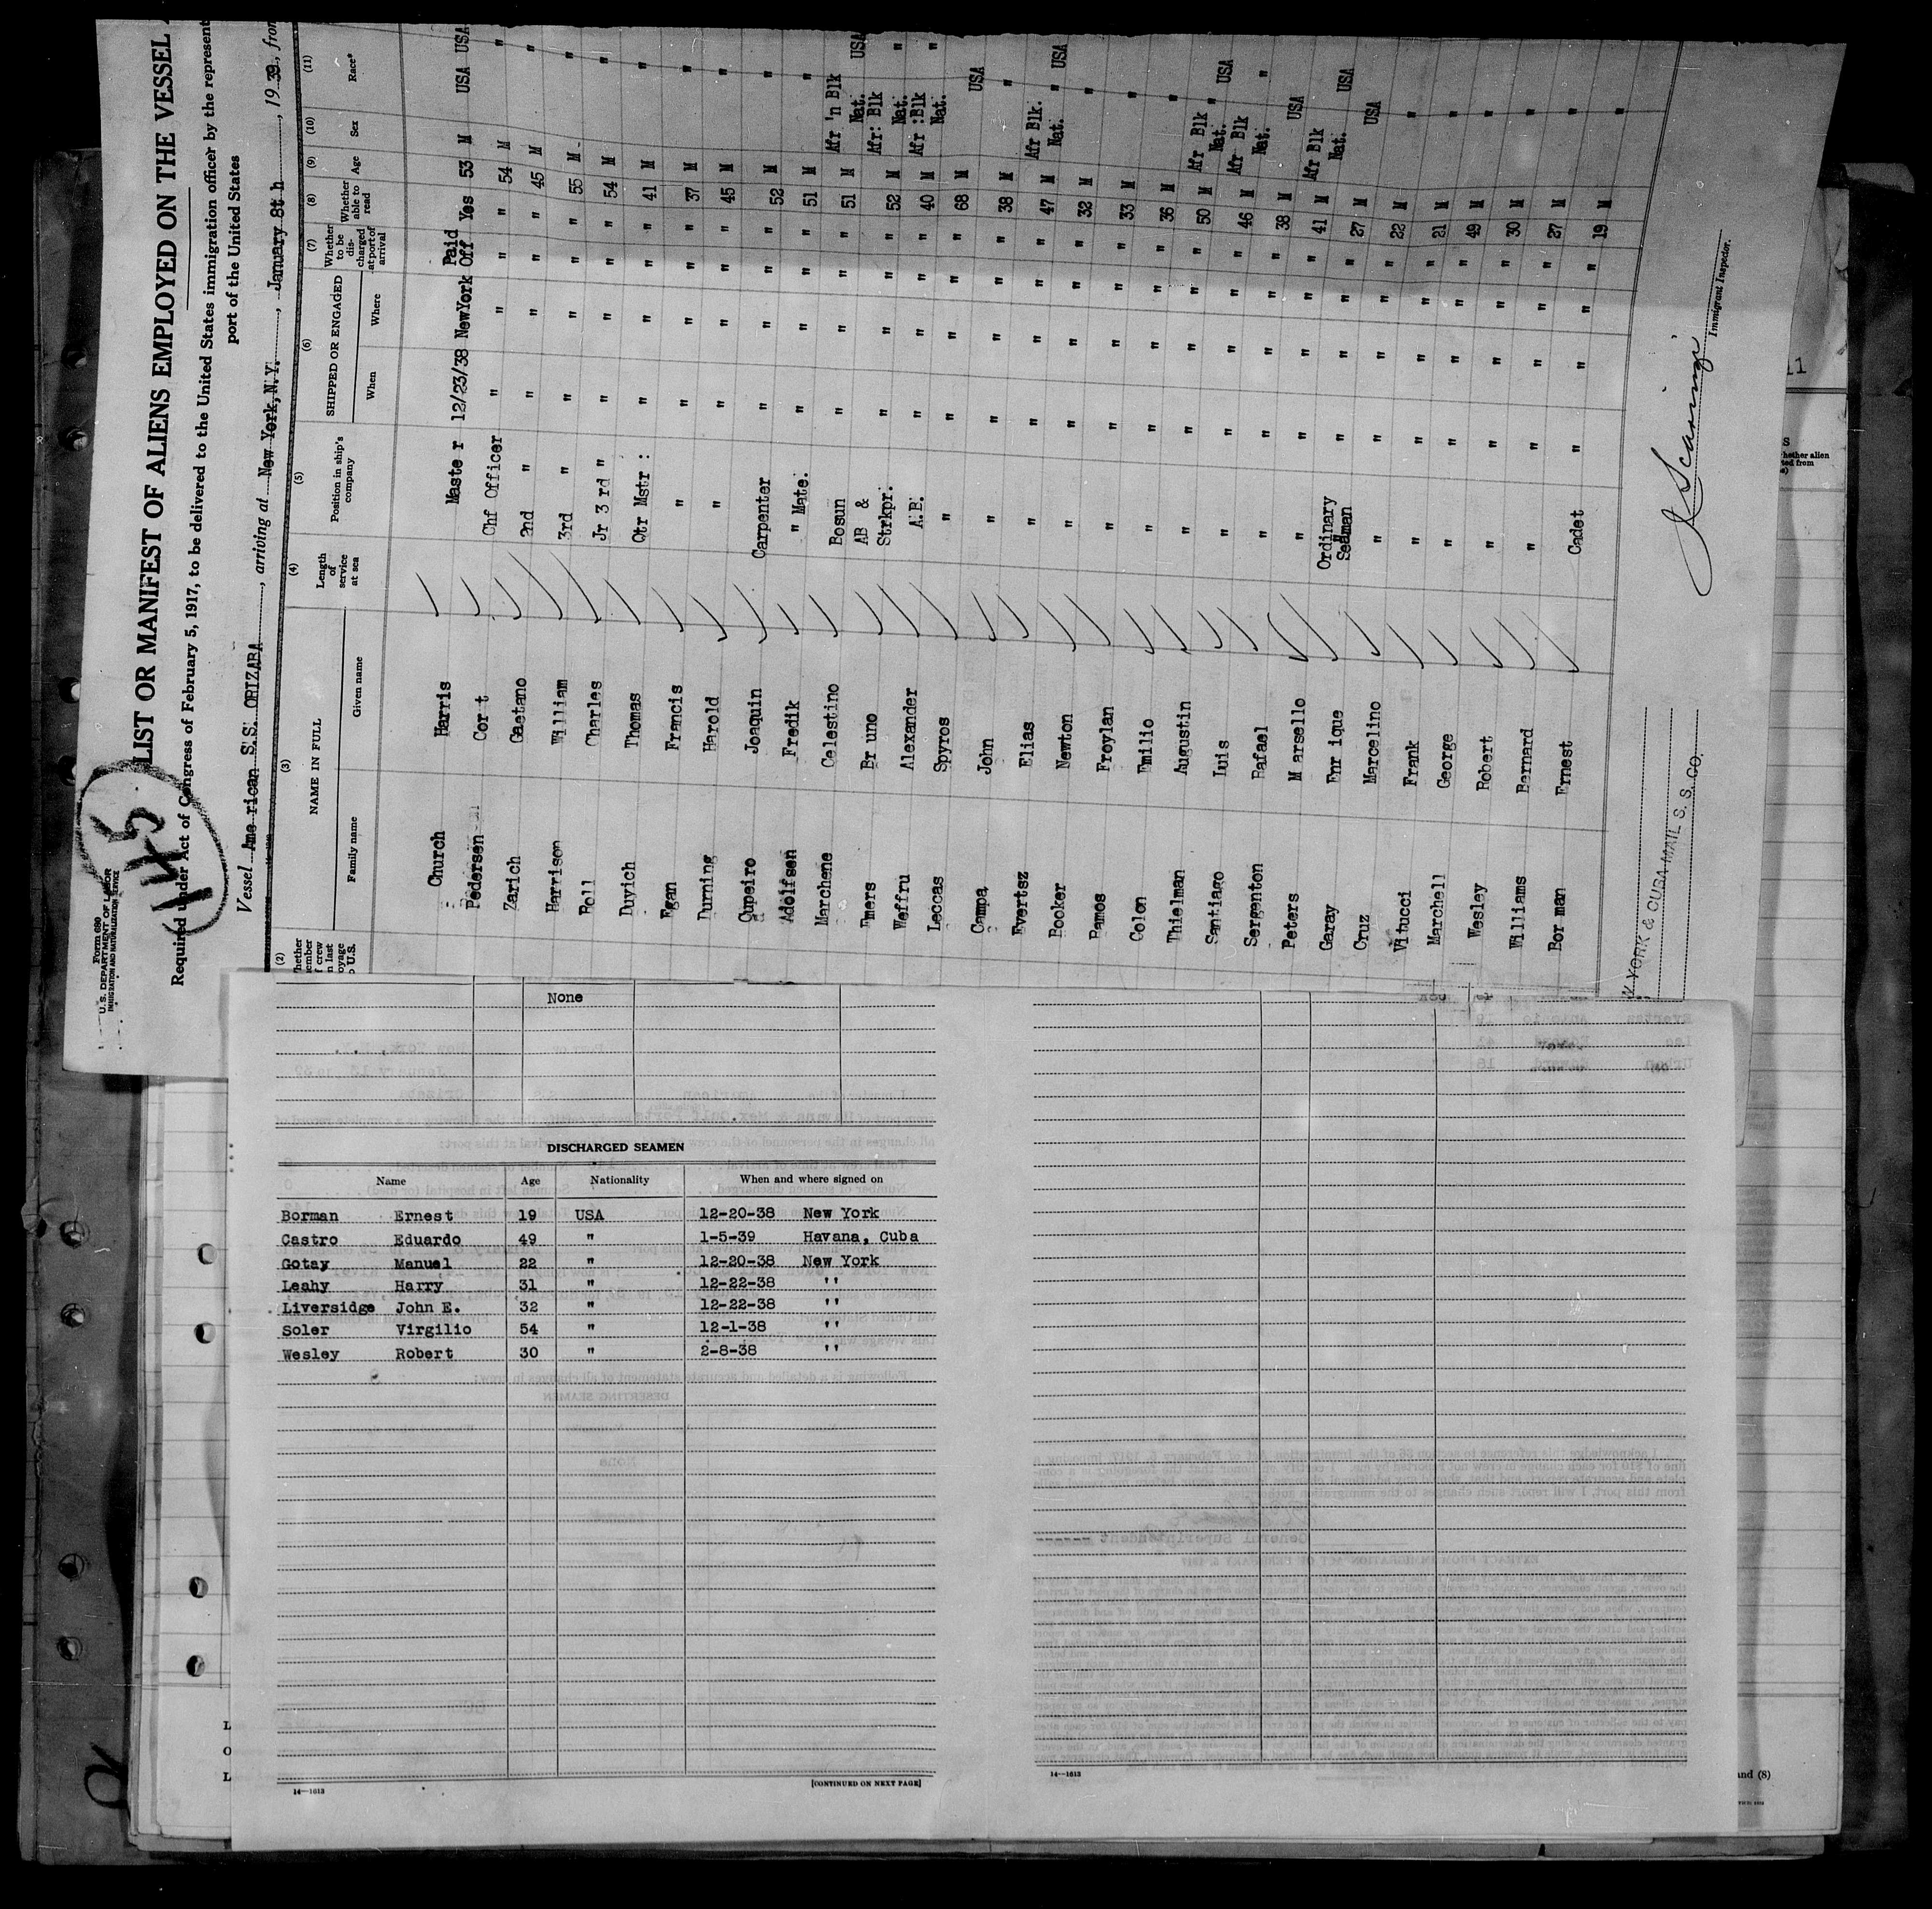 Form 680
U. S. DEPARTMENT OF LABOR
IMMIGRATION AND NATURALIZATION SERVICE
145
LIST OR MANIFEST OF ALIENS EMPLOYED ON THE VESSEL
Required under Act of Congress of February 5, 1917, to be delivered to the United States immigration officer by the represent
port of the United States
Vessel American S.S. ORIZABA, arriving at New York,N.Y., January 8th, 1939, from
(2) (3) (4) (5) (6) (7) (8) (9) (10) (11)
NAME IN FULL Length of service at sea Position in ship's company SHIPPED OR ENGAGED Whether to be discharged at port of arrival Whether able to read Age Sex Race*
Family name Given name When Where
Church Harris Master 12/23/38 NewYork Paid Off Yes 53 M USA USA
Pedersen Cort Chf Officer " " " " 54 M "
Zarich Gaetano 2nd " " " " " 45 M "
Harrison William 3rd " " " " " 55 M "
Boll Charles Jr 3 rd " " " " " 54 M "
Duvich Thomas Qtr Mstr : " " " " 41 M "
Egan Francis " " " " " 37 M "
Durning Harold " " " " " 45 M "
Cupeiro Joaquin Carpenter " " " " 52 M "
Adolfsen Fredik " Mate. " " " " 51 M "
Marchene Celestino Bosun " " " " 51 M Afr 'n Blk Nat. USA
Emers Bruno AB & Strkpr. " " " " 52 M Afr: Blk Nat. "
Weffru Alexander A.B. " " " " 40 M Afr :Blk Nat. "
Leccas Spyros " " " " " 68 M USA
Campa John " " " " " 38 M "
Evertsz Elias " " " " " 47 M Afr Blk. Nat. " USA
Booker Newton " " " " " 32 M "
Ramos Froylan " " " " " 33 M "
Colon Emilio " " " " " 36 M "
Thielman Augustin " " " " " 50 M Afr Blk Nat. " USA
Santiago Luis " " " " " 46 M Afr Blk Nat. "
Sergenton Rafael " " " " " 38 M USA
Peters Marsello " " " " " 41 M Afr Blk Nat. USA
Garay Enrique Ordinary Seaman " " " " 27 M USA
Cruz Marcelino " " " " " 22 M "
Vitucci Frank " " " " " 21 M "
Marchell George " " " " " 49 M "
Wesley Robert " " " " " 30 M "
Williams Bernard " " " " " 27 M "
Borman Ernest Cadet " " " " 19 M "
YORK & CUBA MAIL S. S. CO.
Immigrant Inspector.
None
DISCHARGED SEAMEN
Name Age Nationality When and where signed on
Borman Ernest 19 USA 12-20-38 New York
Castro Eduardo 49 " 1-5-39 Havana, Cuba
Gotay Manuel 22 " 12-20-38 New York
Leahy Harry 31 " 12-22-38 ''
Liversidge John E. 32 " 12-22-38 ''
Soler Virgilio 54 " 12-1-38 ''
Wesley Robert 30 " 2-8-38 ''
14—1613
[CONTINUED ON NEXT PAGE]
14—1613
and (8)